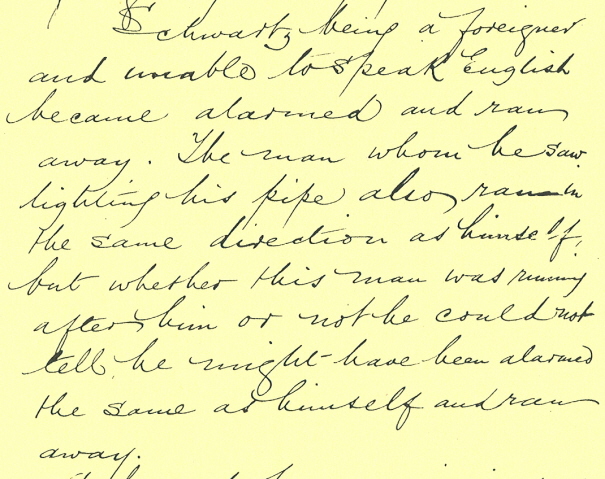 Schwartz being a foreigner
and unable to speak English
became alarmed and ran
away. The man whom he saw
lighting his pipe also ran in
the same direction as himself,
but whether this man was running
after him or not he could not
tell, he might have been alarmed
the same as himself and ran
away.